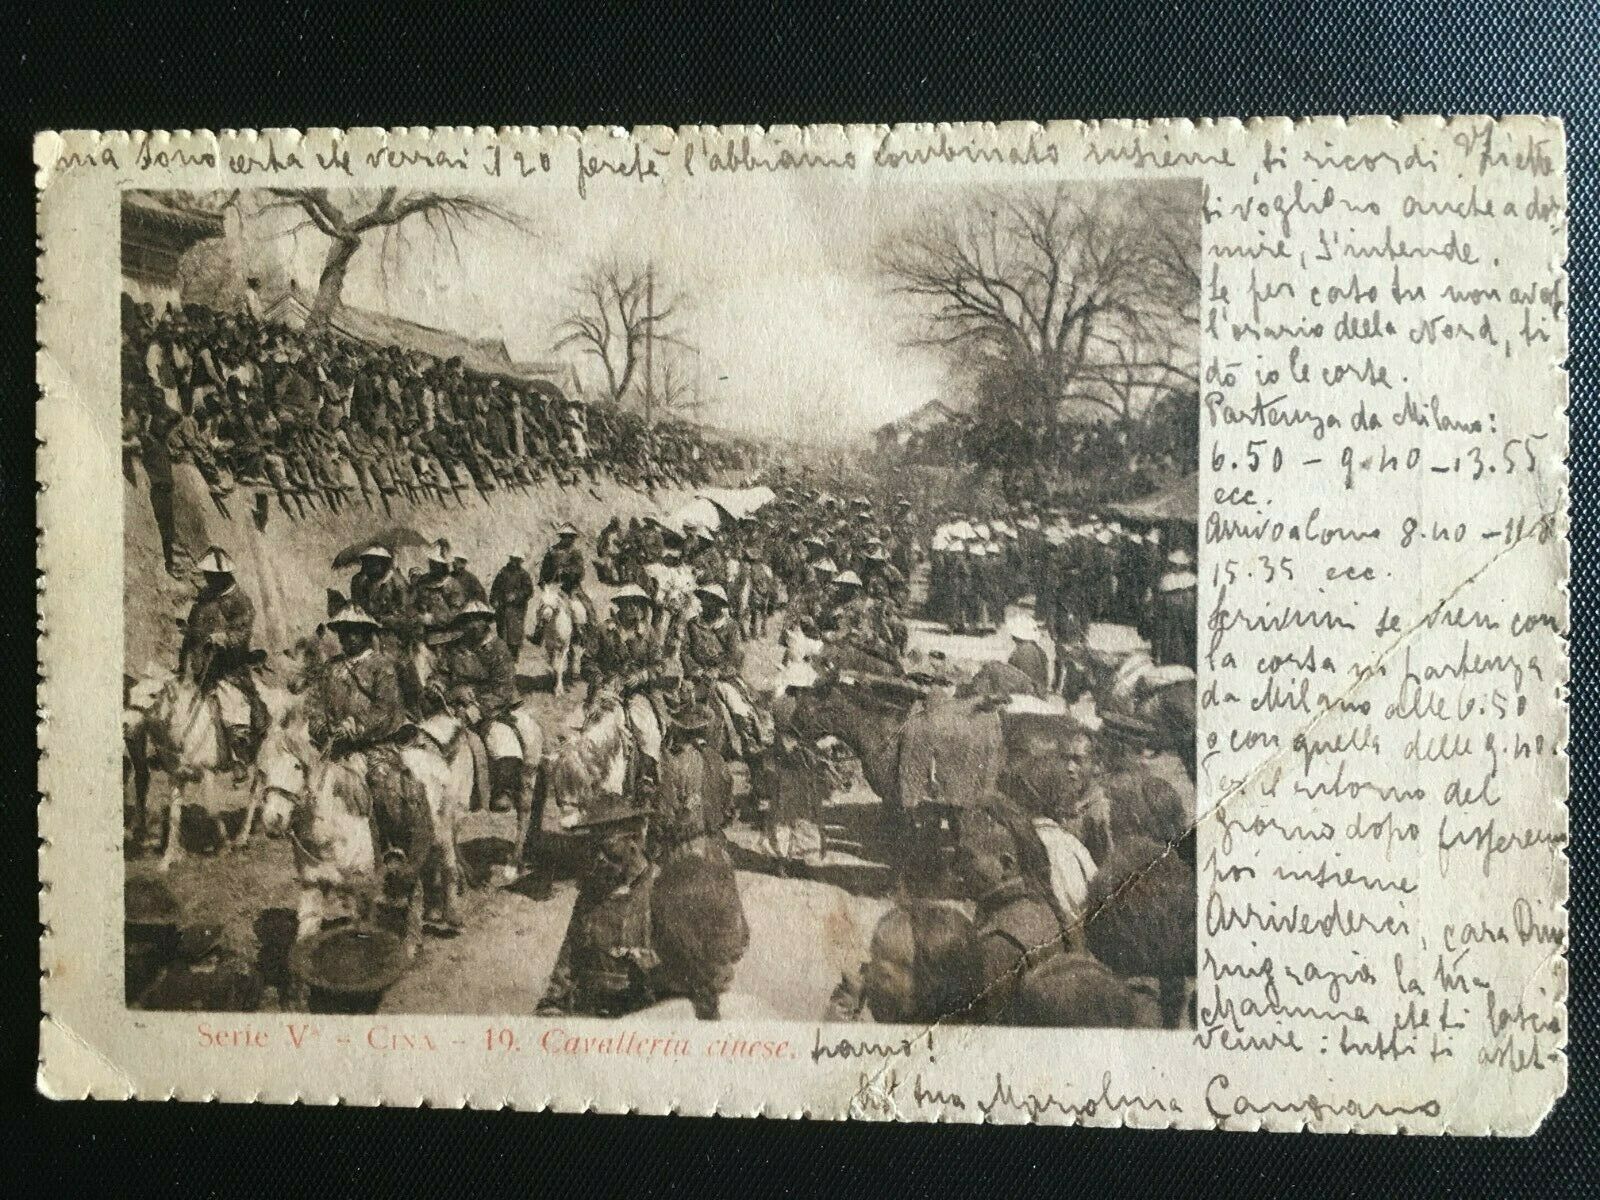 ma sono certa che verrai il 20 perchè l'abbiamo combinato insieme, ti ricordi?
ti vogliono anche a dor=
mire, s'intende.
Se per caso tu non avessi
l'orario della Nord, ti
dò io le corse.
Partenza da Milano:
6.50 - 9.40 - 13.55
ecc.
Arrivo a Como 8.40 - 11.8
15.35 ecc.
Scrivimi se vieni con
la corsa in partenza
da Milano alle 6.50
o con quella delle 9.40.
Per il ritorno del
giorno dopo fisseremo
poi insieme
Arrivederci, cara
ringrazia la tua
Mamma che ti lascia
venire: tutti ti aspet-
tiamo!
tua Mariolina Cangiano
Serie Vª - CINA - 19. Cavalleria cinese.